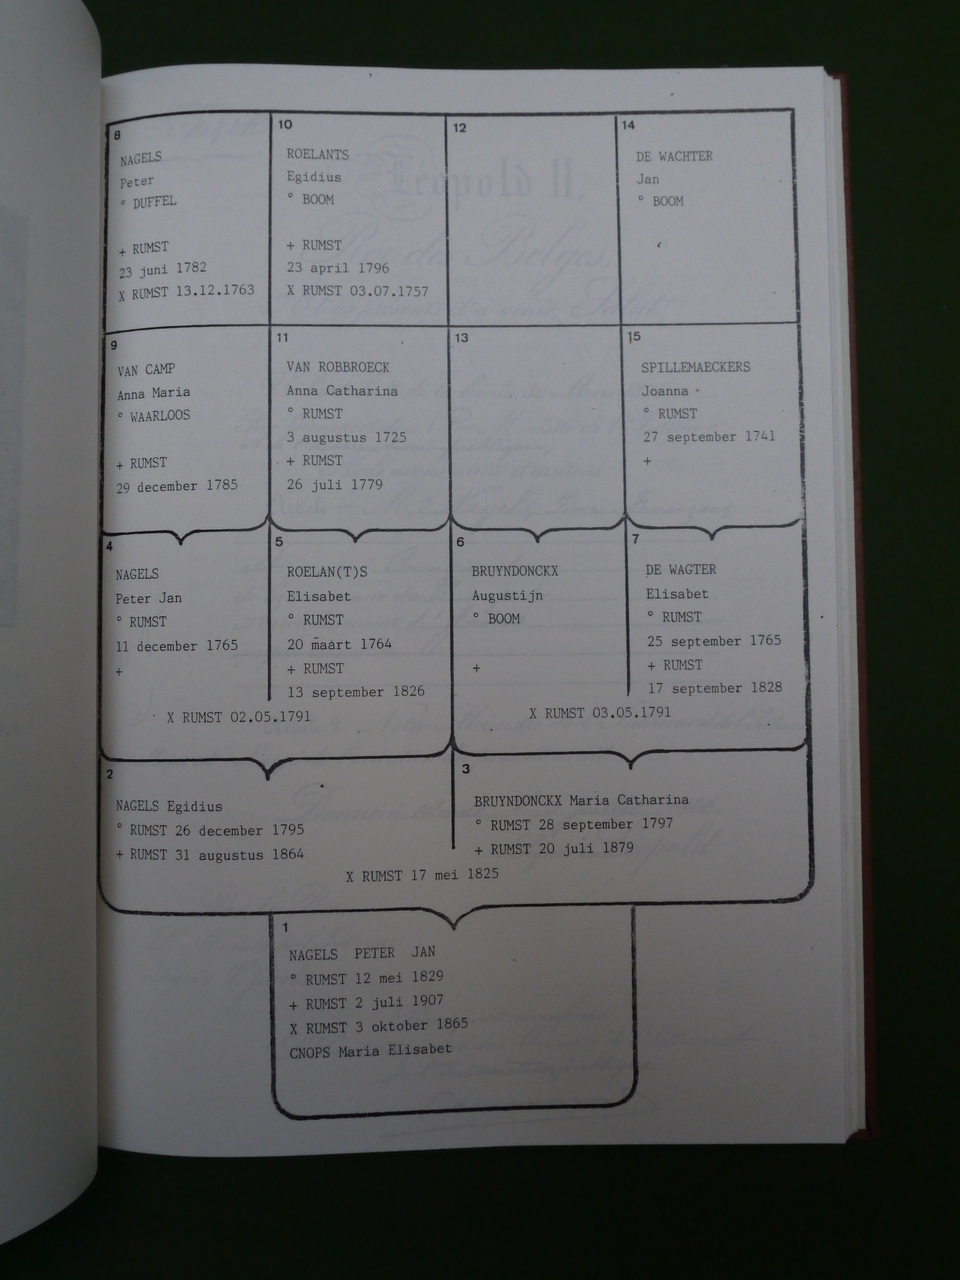 8
NAGELS
Peter
° DUFFEL
+ RUMST
23 juni 1782
X RUMST 13.12.1763
10
ROELANTS
Egidius
° BOOM
+ RUMST
23 april 1796
X RUMST 03.07.1757
12
14
DE WACHTER
Jan
° BOOM
9
VAN CAMP
Anna Maria
° WAARLOOS
+ RUMST
29 december 1785
11
VAN ROBBROECK
Anna Catharina
° RUMST
3 augustus 1725
+ RUMST
26 juli 1779
13
15
SPILLEMAECKERS
Joanna
° RUMST
27 september 1741
+
4
NAGELS
Peter Jan
° RUMST
11 december 1765
+
5
ROELAN(T)S
Elisabet
° RUMST
20 maart 1764
+ RUMST
13 september 1826
X RUMST 02.05.1791
6
BRUYNDONCKX
Augustijn
° BOOM
+
7
DE WAGTER
Elisabet
° RUMST
25 september 1765
+ RUMST
17 september 1828
X RUMST 03.05.1791
2
NAGELS Egidius
° RUMST 26 december 1795
+ RUMST 31 augustus 1864
3
BRUYNDONCKX Maria Catharina
° RUMST 28 september 1797
+ RUMST 20 juli 1879
X RUMST 17 mei 1825
1
NAGELS PETER JAN
° RUMST 12 mei 1829
+ RUMST 2 juli 1907
X RUMST 3 oktober 1865
CNOPS Maria Elisabet
Leopold II,
Roi des Belges,